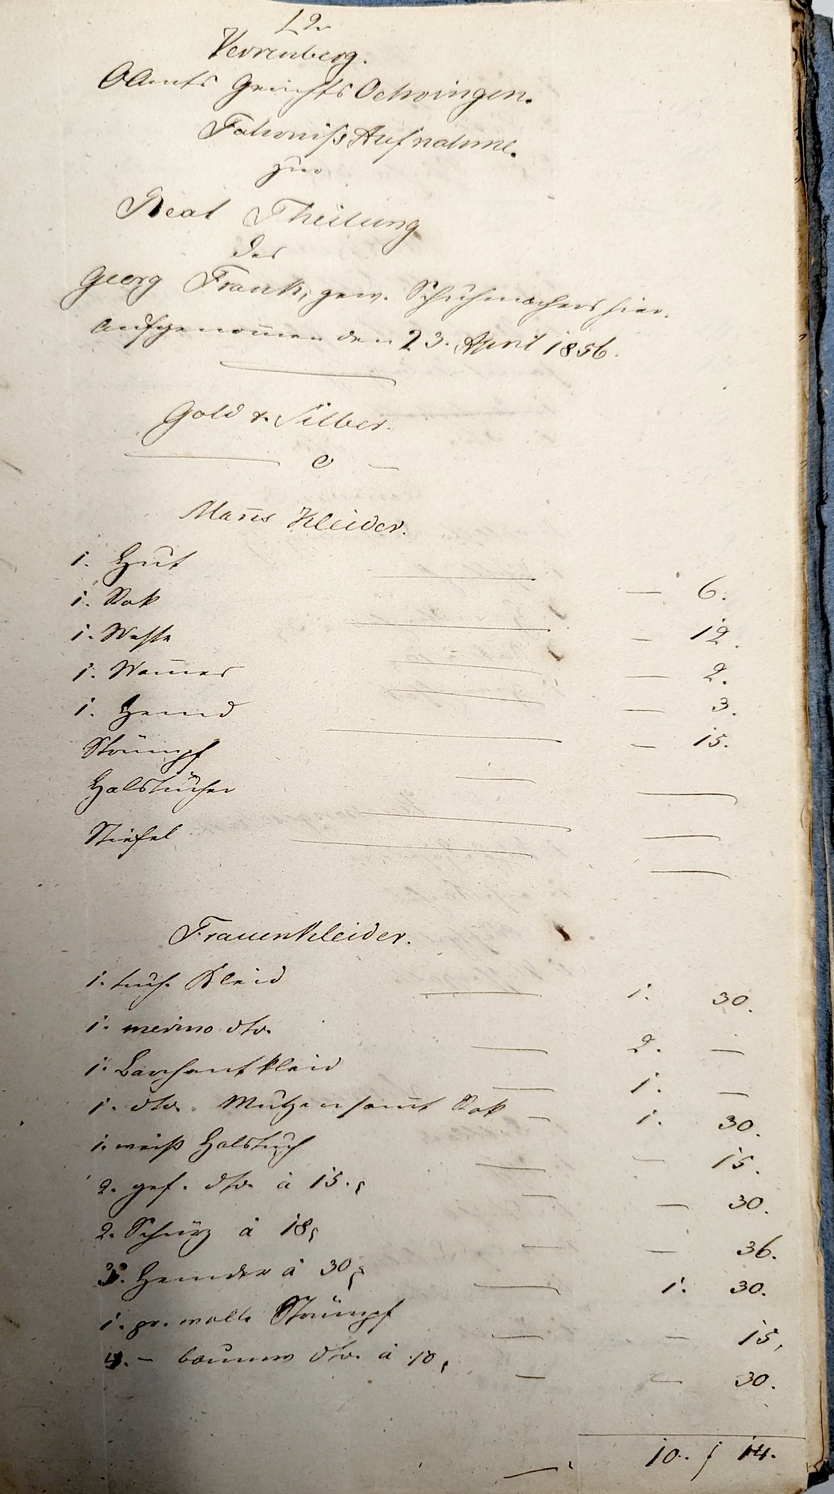 L 2.
Verrenberg.
OAmts Gerichts Oehringen.
Fahrniß Aufnahme.
zur
Real Theilung
des
Georg Frank, gew. Schuhmachers hier.
aufgenom̄en den 23. April 1856.
Gold & Silber.
— 0 —
Man̄s Kleider.
1. Hut — 6.
1. Rok — 12.
1. Weste — 2.
1. Wam̄es — 3.
1. Hemd — 15.
Strümpf —
Halstücher —
Stiefel —
Frauenkleider.
1. tuch. Kleid — 1. 30.
1. merino dto. — 2. —
1. Barchentkleid — 1. —
1. dto. Mutzen samt Rok — 1. 30.
1. weiß Halstuch — 15.
2. gef. dto. à 15. — 30.
2. Schürz à 18 — 36.
3. Hemder à 30 — 1. 30.
1. pr. wolle Strümpf — 15.
— baumw dto. à 10 — 30.
10. f 14.